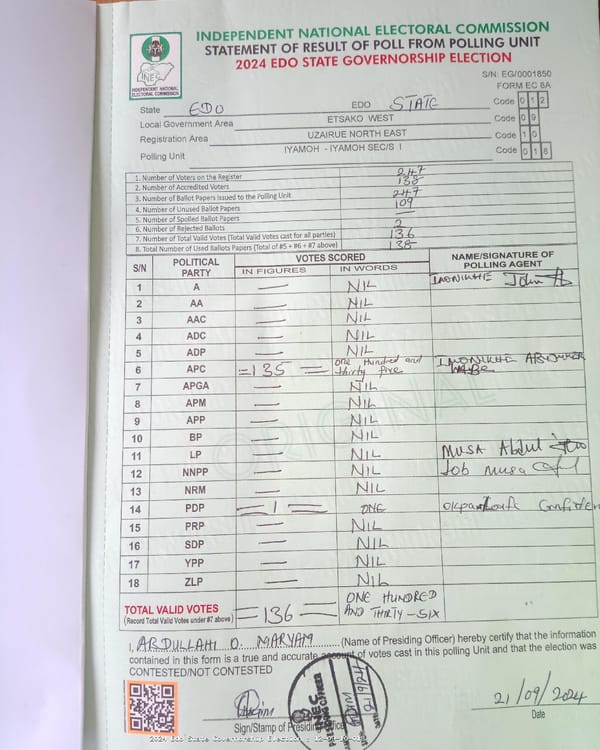 INDEPENDENT NATIONAL ELECTORAL COMMISSION
STATEMENT OF RESULT OF POLL FROM POLLING UNIT
2024 EDO STATE GOVERNORSHIP ELECTION
INEC
INDEPENDENT NATIONAL
ELECTORAL COMMISSION
S/N: EG/0001850
FORM EC 8A
State EDO EDO STATE Code 0 1 2
Local Government Area ETSAKO WEST Code 0 9
Registration Area UZAIRUE NORTH EAST Code 1 0
Polling Unit IYAMOH - IYAMOH SEC/S I Code 0 1 8
1. Number of Voters on the Register 247
2. Number of Accredited Voters 138
3. Number of Ballot Papers Issued to the Polling Unit 247
4. Number of Unused Ballot Papers 109
5. Number of Spoiled Ballot Papers —
6. Number of Rejected Ballots 2
7. Number of Total Valid Votes (Total Valid Votes cast for all parties) 136
8. Total Number of Used Ballots Papers (Total of #5 + #6 + #7 above) 138
S/N POLITICAL PARTY VOTES SCORED NAME/SIGNATURE OF POLLING AGENT
IN FIGURES IN WORDS
1 A — NIL IMONIKHE John
2 AA — NIL
3 AAC — NIL
4 ADC — NIL
5 ADP — NIL
6 APC =135= One Hundred and thirty five IMONIKHE
7 APGA — NIL
8 APM — NIL
9 APP — NIL
10 BP — NIL
11 LP — NIL MUSA Abdul
12 NNPP — NIL Job Musa
13 NRM — NIL
14 PDP =1= ONE
15 PRP — NIL
16 SDP — NIL
17 YPP — NIL
18 ZLP — NIL
TOTAL VALID VOTES =136= ONE HUNDRED AND THIRTY-SIX
(Record Total Valid Votes under #7 above)
ORIGINAL
I, ABDULLAHI O. MARYAM (Name of Presiding Officer) hereby certify that the information
contained in this form is a true and accurate account of votes cast in this polling Unit and that the election was
CONTESTED/NOT CONTESTED
INEC
21/9/24
21/09/2024
Sign/Stamp of Presiding Officer
Date
2024 Edo State Governorship Election